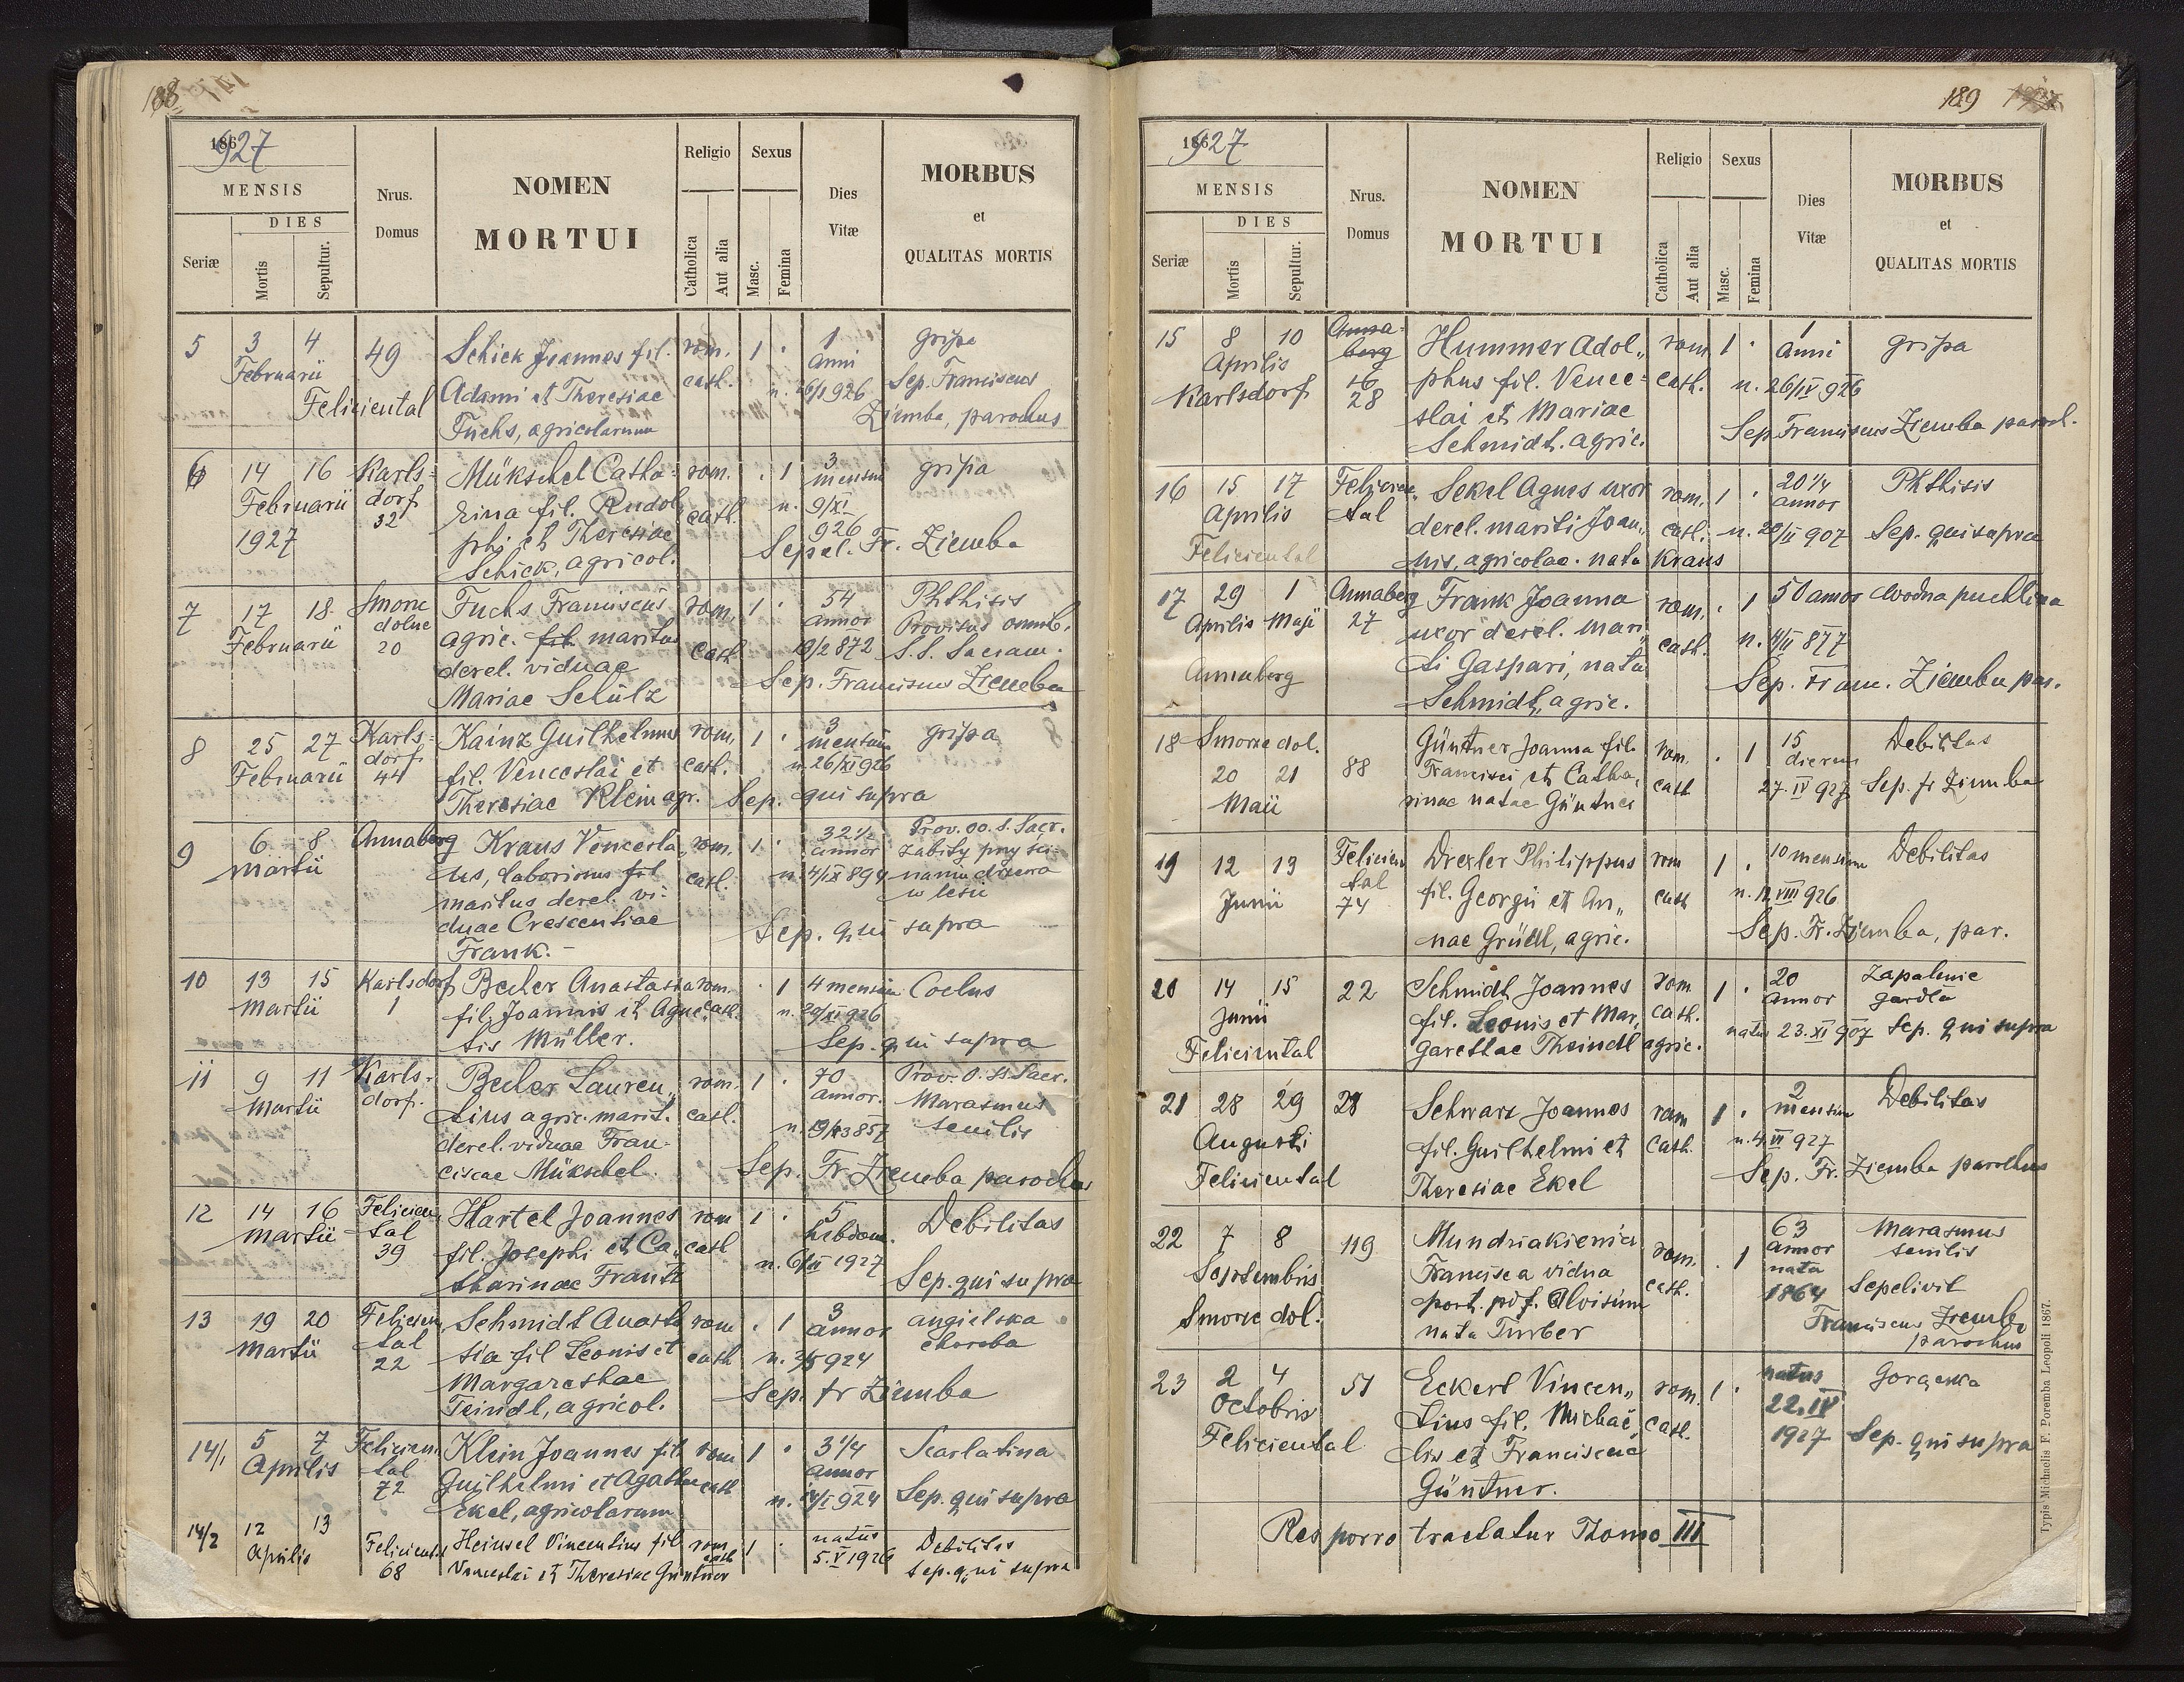 188
1927
MENSIS
DIES
Seriæ
Mortis
Sepultur.
Nrus. Domus
NOMEN
MORTUI
Religio
Catholica
Aut alia
Sexus
Masc.
Femina
Dies
Vitæ
MORBUS
et
QUALITAS MORTIS
5 3 4 49 Schick Joannes fil. rom. 1 · 1 gripa
Februarii Adami et Theresiae cath. anni Sep. Franciscus
Feliciental Fuchs, agricolarum n. 926 Ziemba, parochus
6 14 16 Karls= Mükschel Catha= rom. · 1 3 mensium gripa
Februarii dorf rina fil. Rudol„ cath. n. 9/XI
1927 32 phi et Theresiae 926
Schick, agricol. Sepel. Fr. Ziemba
7 17 18 Smorze Fuchs Franciscus rom. 1 · 54 Phthisis
Februarii dolne agric. fil. maritus cath. annor Provisus omnib.
20 derel. viduae 872 S. S. Sacram.
Mariae Schülz Sep. Franciscus Ziemba
8 25 27 Karls= Kainz Guilhelmus rom. 1 · 3 gripa
Februarii dorf fil. Venceslai et cath. mensium
44 Theresiae Klein agr. n. 26/XI 926
Sep. qui supra
9 6 8 Annaberg Kraus Vencesla„ rom. 1 · 32 1/2 Prov. oo. s. Sacr.
Martii us, laboriosus fil cath. annor zabity przy ści-
maritus derel. vi- n. 4/IX 894 naniu drzewa
duae Crescentiae w lesie
Frank.- Sep. qui supra
10 13 15 Karlsdorf Becher Anastasia rom. · 1 4 mensium Coclus
Martii 1 fil. Joannis et Agne„ cath. n. 926
tis Müller. Sep. qui supra
11 9 11 Karls- Becher Lauren„ rom. 1 · 70 Prov. o. ss Sacr.
Martii dorf. tius agric. marit. cath. annor. Marasmus
derel. viduae Fran- n. 857 senilis
ciscae Mükschel. Sep. Fr Ziemba parochus
12 14 16 Felicien„ Hartel Joannes rom 1 · 5 Debilitas
Martii tal fil. Josephi et Ca„ cath hebdom.
39 tharinae Frantz n. 1927 Sep. qui supra
13 19 20 Felicien„ Schmidt Anasta rom · 1 3 angielska
Martii tal sia fil Leonis et cath annor choroba
22 Margarethae n. 924
Teindl, agricol. Sep. fr Ziemba
14/1 5 7 Felicien„ Klein Joannes fil rom 1 · 3 1/4 Scarlatina
Aprilis tal Guilhelmi et Agathae cath annor
72 Ekel, agricolarum n. 924 Sep. qui supra
14/2 12 13 Feliciental Heinsel Vincentius fil rom cath 1 · natus Debilitas
Aprilis 68 Venceslai et Theresiae Güntner 5.V 1926 Sep. qui supra
189
1927
MENSIS
DIES
Seriæ
Mortis
Sepultur.
Nrus. Domus
NOMEN
MORTUI
Religio
Catholica
Aut alia
Sexus
Masc.
Femina
Dies
Vitæ
MORBUS
et
QUALITAS MORTIS
15 8 10 Anna- Hummer Adol„ rom 1 · 1 gripa
Aprilis berg phus fil. Vence= cath. anni
Karlsdorf 16 slai et Mariae n. 26/IV 926
28 Schmidt. agric. Sep. Franciscus Ziemba paroch.
16 15 17 Felicien„ Sekel Agnes uxor rom. 1 · 20 1/4 Phthisis
Aprilis tal derel. mariti Joan„ cath. annor
Feliciental nis, agricolae. nata Kraus n. 907 Sep. qui supra
17 29 1 Annaberg Frank Joanna rom. · 1 50 annor wodna puchlina
Aprilis Maji 27 uxor derel. mari„ cath. n. 877
Annaberg ti Gaspari, nata
Schmidt, agric. Sep. Franc. Ziemba par.
18 Smorze dol. Güntner Joanna fil. rom. · 1 15 Debilitas
20 21 88 Francisci et Catha„ cath dierum
Maii rinae natae Güntner 27.IV 927 Sep. fr Ziemba
19 12 13 Felicien Drexler Philippus rom 1 · 10 mensium Debilitas
Junii tal fil. Georgii et An„ cath n. 12 VIII 926
74 nae Gründl, agric. Sep. Fr. Ziemba, par.
20 14 15 22 Schmidt Joannes rom 1 · 20 Zapalenie
Junii fil. Leonis et Mar„ cath. annor gardła
Feliciental garethae Theindl agric. natus 23.XI 907 Sep. qui supra
21 28 29 28 Schwarz Joannes rom 1 · 2 Debilitas
Augusti fil. Guilhelmi et cath. mensium
Feliciental Theresiae Ekel n. 4 VI 927
Sep. Fr. Ziemba parochus
22 7 8 119 Mundziakiewicz rom. · 1 63 Marasmus
Septembris Francisca vidua cath. annor senilis
Smorze dol. post. pdf. Aloisium nata Sepelivit
nata Turber 1864 Franciscus Ziemba
parochus
23 2 4 51 Eckert Vincen„ rom. 1 · natus Gorączka
Octobris tius fil. Michaë„ cath. 22.IV
Feliciental lis et Franciscae 1927 Sep. qui supra
Güntner.
Res porro tractatur Thomo III
Typis Michaelis F. Poremba Leopoli 1867.